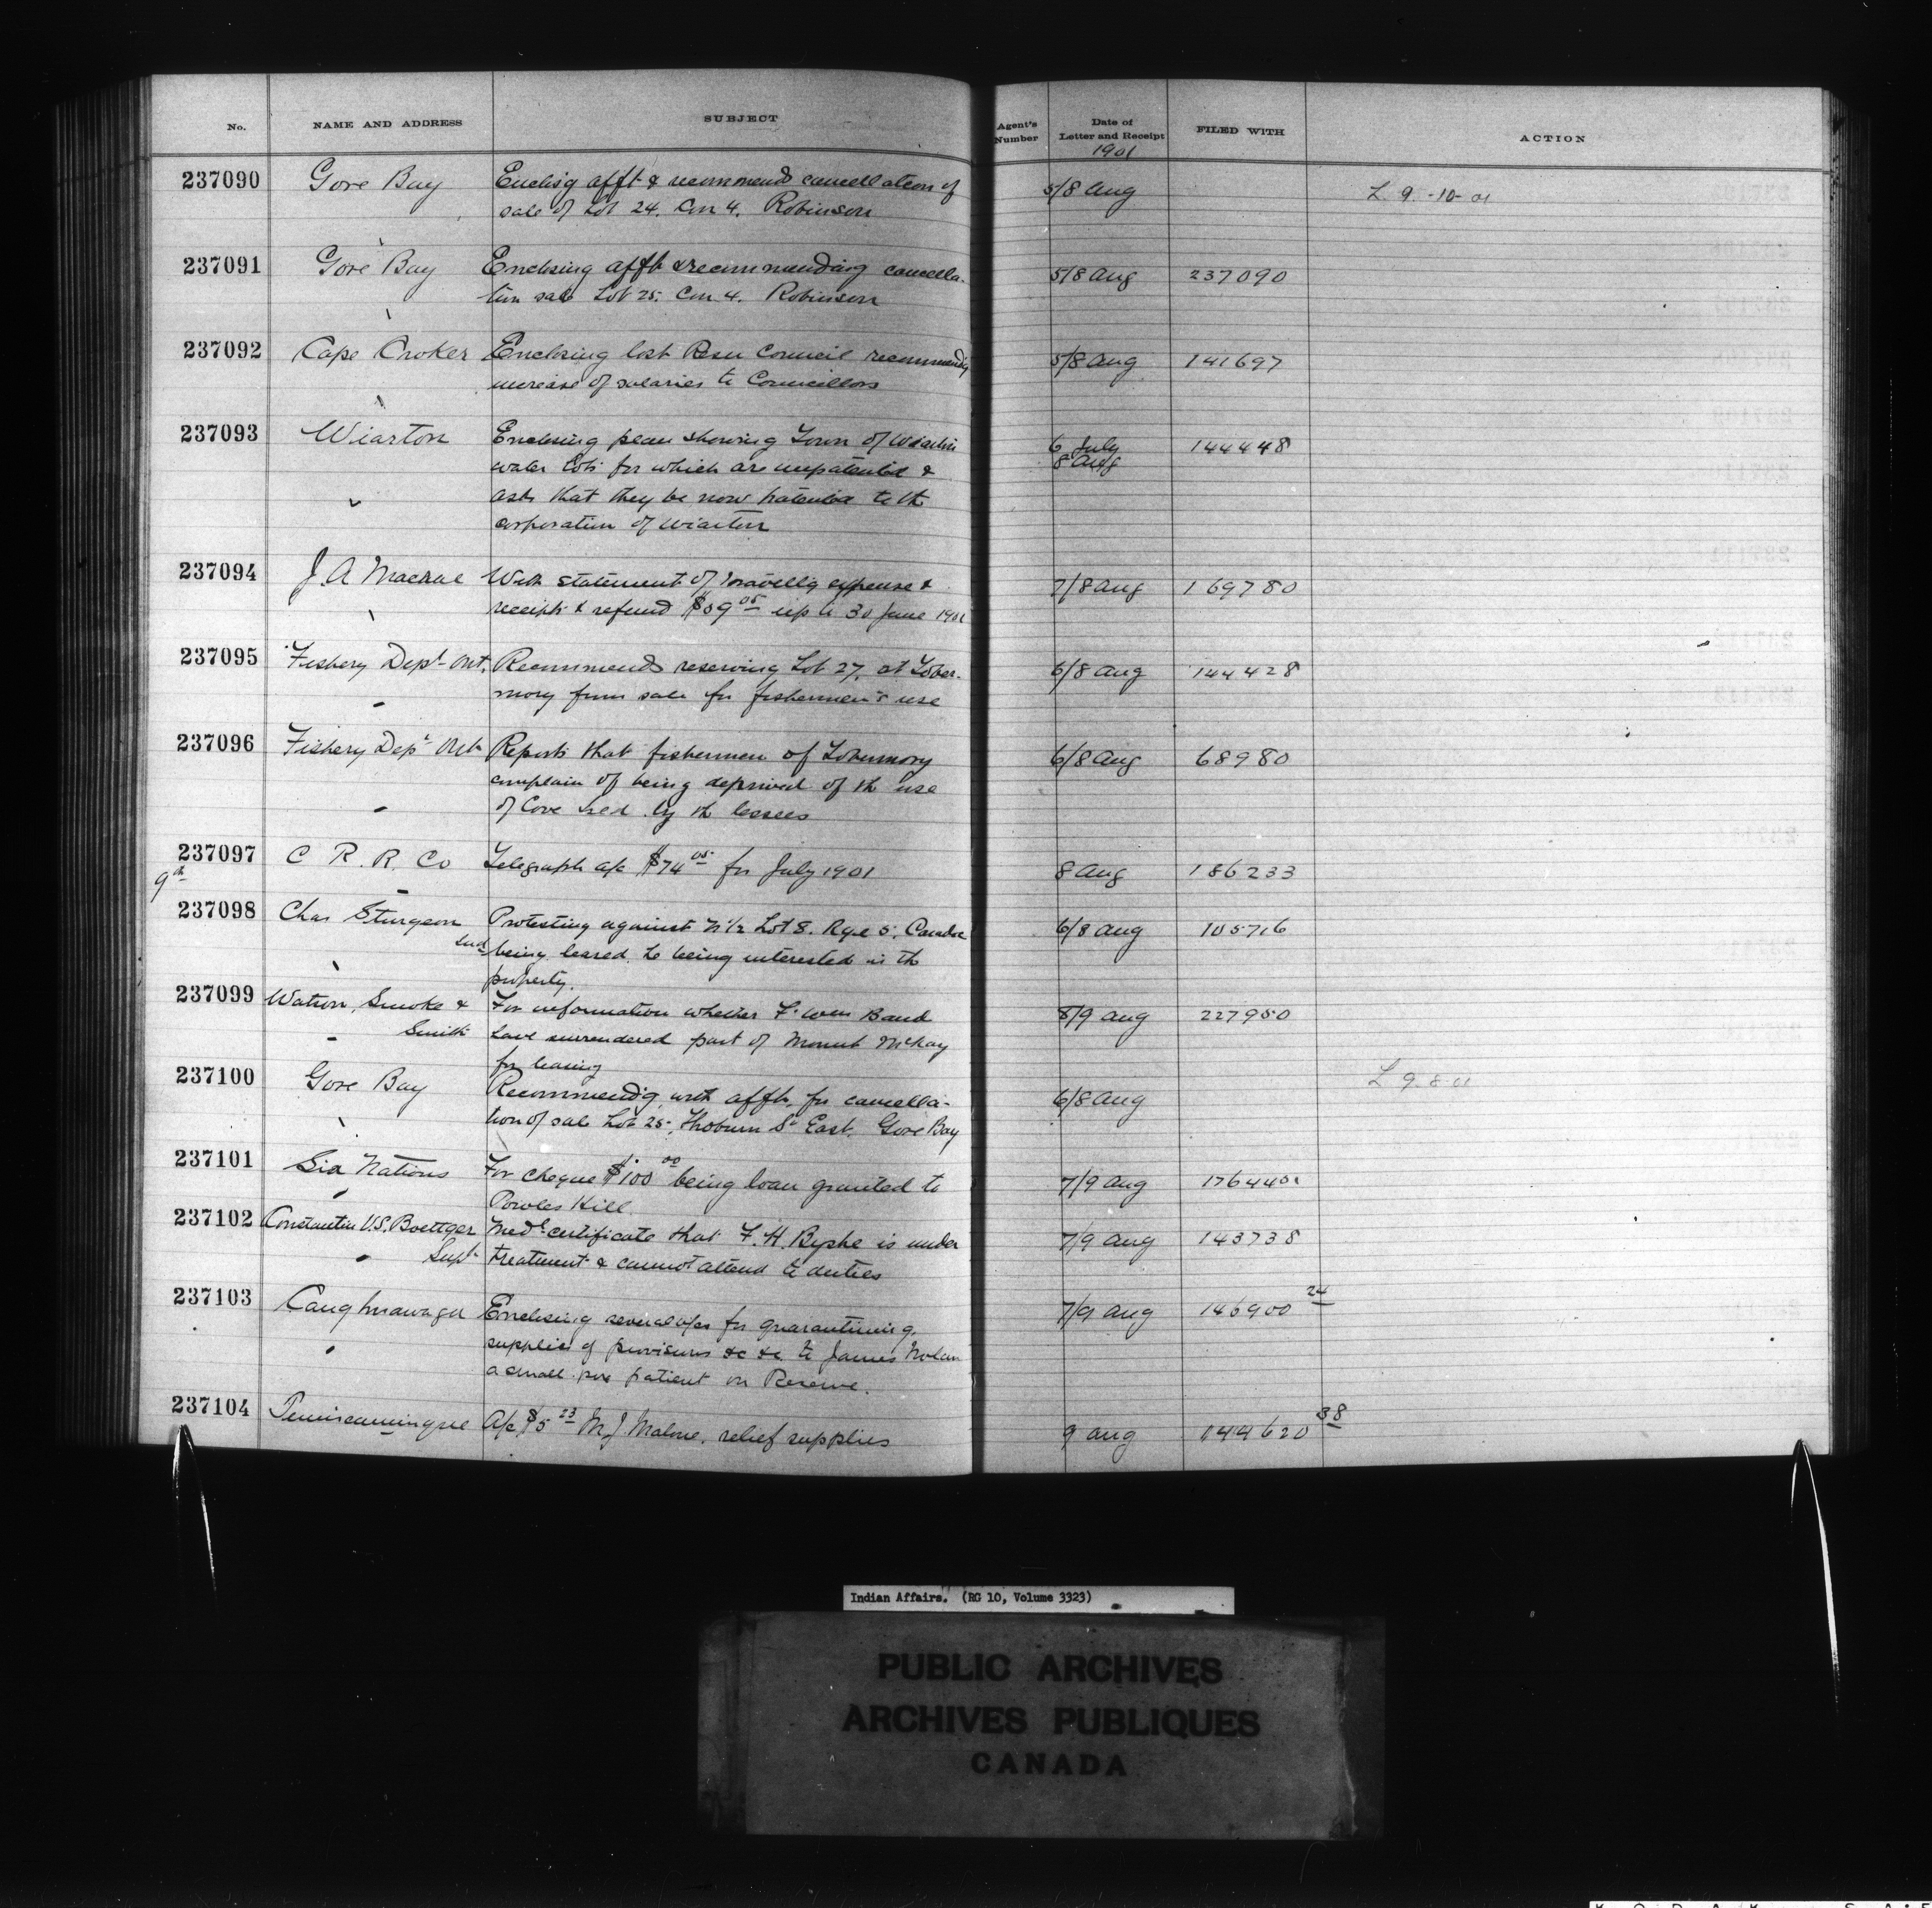 No. NAME AND ADDRESS SUBJECT Agent's Number Date of Letter and Receipt FILED WITH ACTION
1901
237090 Gore Bay Enclos'g afft & recommends cancellation of 5/8 Aug L 9-10-01
sale of Lot 24. Con 4. Robinson
237091 Gore Bay Enclosing afft & recommending cancella- 5/8 Aug 237090
tion sale Lot 25. Con 4. Robinson
237092 Cape Croker Enclosing lost Resn Council recommend'g 5/8 Aug 141697
increase of salaries to Councillors
237093 Wiarton Enclosing plan showing Town of Wiarton 6 July 144448
water lots for which are unpatented & 8 Aug
asks that they be now patented to th
corporation of Wiarton
237094 J. A Macrae With statement of travellg expense & 7/8 Aug 169780
receipts & refund $59 05 up to 30 June 1901
237095 Fishery Dept Ont. Recommends reserving Lot 27. at Tober- 6/8 Aug 144428
mory from sale for fishermen's use
237096 Fishery Dept Ont Reports that fishermen of Tobermory 6/8 Aug 68980
complain of being deprived of th use
of Cove by th lessees
237097 C. P. R. Co Telegraph a/c $74 05 for July 1901 8 Aug 186233
9th
237098 Chas Sturgeon Protesting against N 1/2 Lot 8. Rge 5. Caradoc 6/8 Aug 105716
Ind being leased. he being interested in th
property.
237099 Watson, Smoke & For information whether F. Wm Band 8/9 Aug 227950
Smith have surrendered part of Mount McKay
for leasing
237100 Gore Bay Recommend'g with afft. for cancella- 6/8 Aug L 9-8-01
tion of sale Lot 25. Thoburn St East. Gore Bay
237101 Six Nations For cheque $100 00 being loan granted to 7/9 Aug
Powles Hill
237102 Constantin U.S. Boettger Medl certificate that F. H. is under 7/9 Aug 143738
Supt treatment & cannot attend to duties
237103 Caughnawaga Enclosing several a/cs for quarantining, 7/9 Aug 146900 24
supplies of provisions &c &c. to James Nolan
a small pox patient on Reserve.
237104 Temiscamingue A/c $5 23 M. J Malone. relief supplies 9 Aug 144620 38
Indian Affairs. (RG 10, Volume 3323)
PUBLIC ARCHIVES
ARCHIVES PUBLIQUES
CANADA